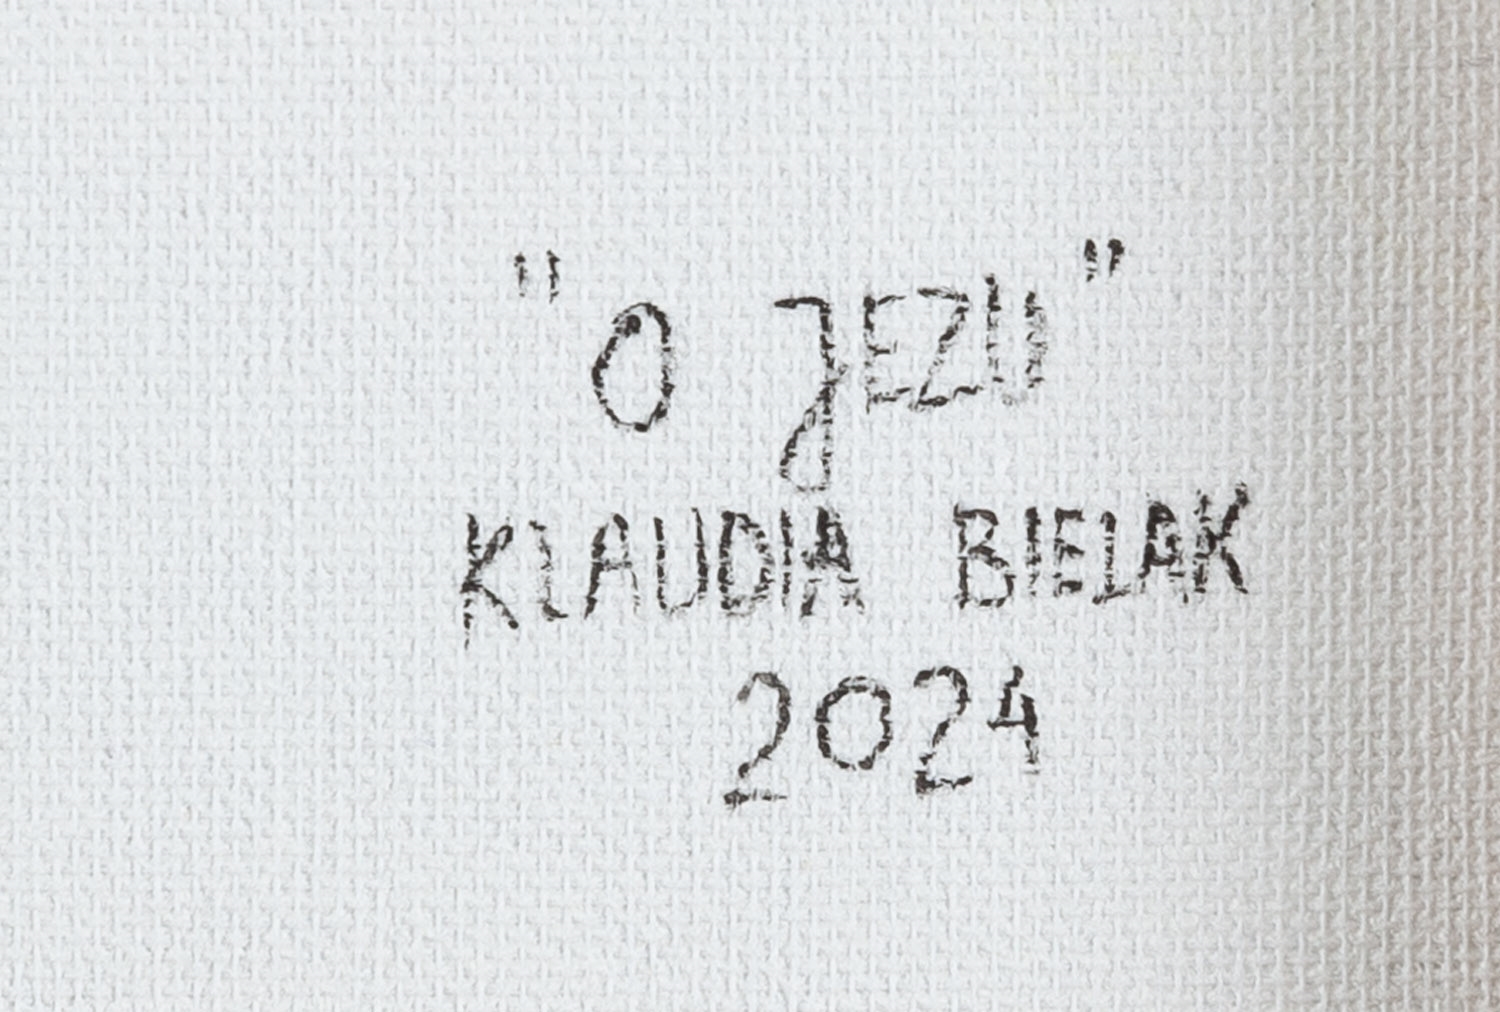 "O JEZU"
KLAUDIA BIELAK
2024